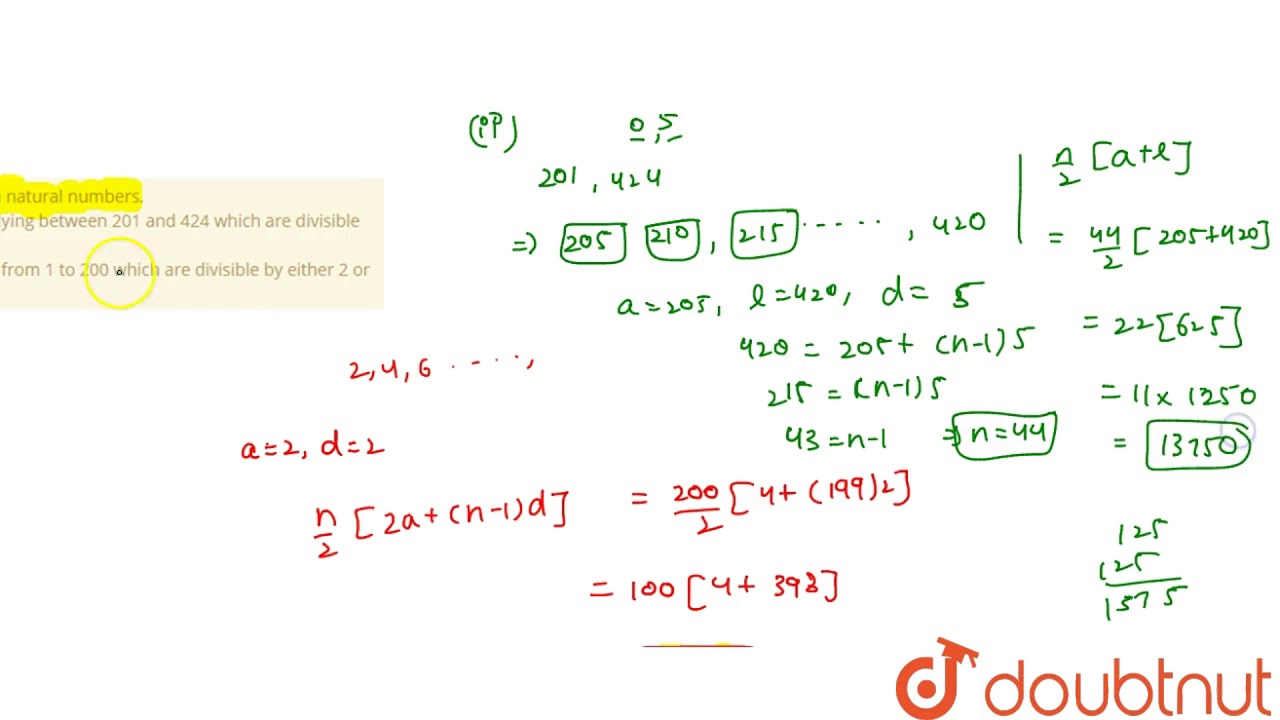 natural numbers.
lying between 201 and 424 which are divisible
from 1 to 200 which are divisible by either 2 or
2,4,6 . - . . . ,
a=2, d=2
n/2 [2a+(n-1)d] = 200/2 [4+(199)2]
= 100 [4+ 398]
(iP) 0,5
201, 424
=) 205 210, 215 ....., 420
a=205, l=420, d= 5
420 = 205+ (n-1)5
215 = (n-1)5
43=n-1 => n=44
n/2 [a+l]
= 44/2 [205+420]
= 22[625]
= 11x 1250
= 13750
125
125
1375
doubtnut